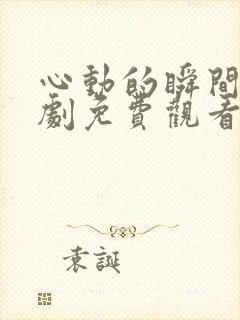 心動的瞬間
劇免費觀看
袁誕